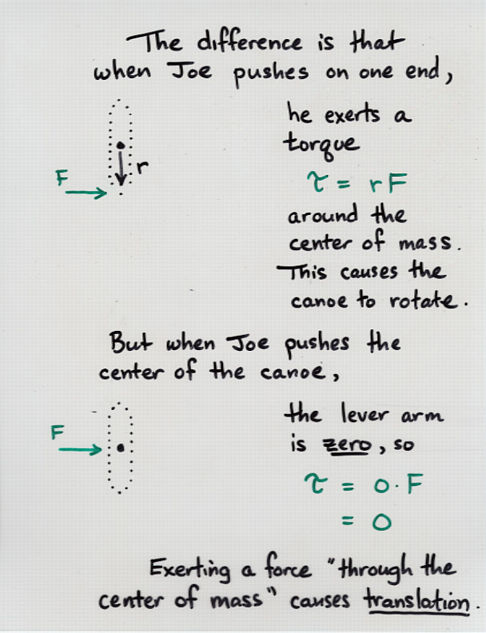 The difference is that
when Joe pushes on one end,
he exerts a
torque
r
F
τ = rF
around the
center of mass.
This causes the
canoe to rotate.
But when Joe pushes the
center of the canoe,
the lever arm
F
is zero, so
τ = 0·F
= 0
Exerting a force "through the
center of mass" causes translation.